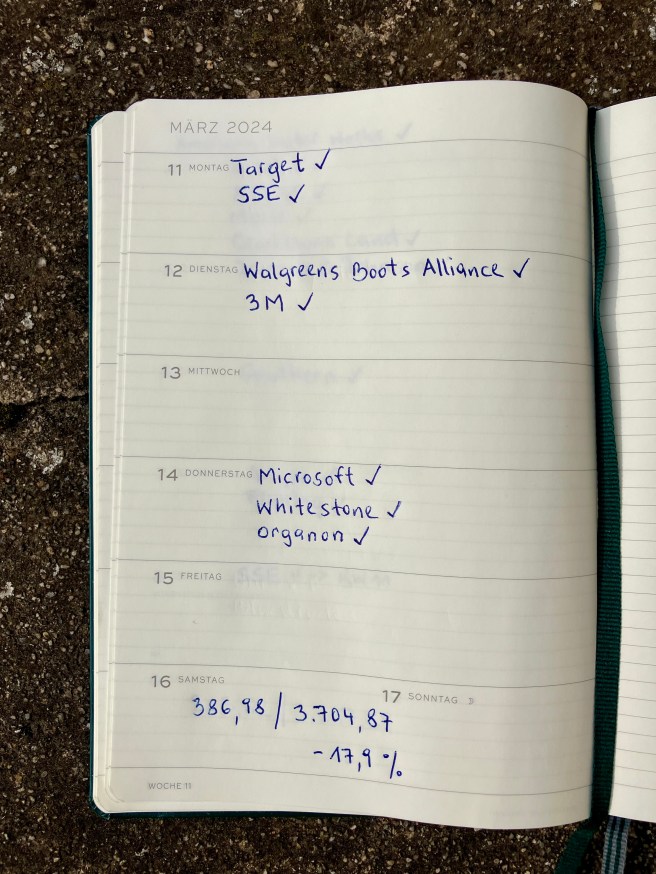 MÄRZ 2024
11 MONTAG Target ✓
SSE ✓
12 DIENSTAG Walgreens Boots Alliance ✓
3M ✓
13 MITTWOCH
14 DONNERSTAG Microsoft ✓
Whitestone ✓
Organon ✓
15 FREITAG
16 SAMSTAG
17 SONNTAG
386,98 / 3.704,87
- 17,9 %
WOCHE 11